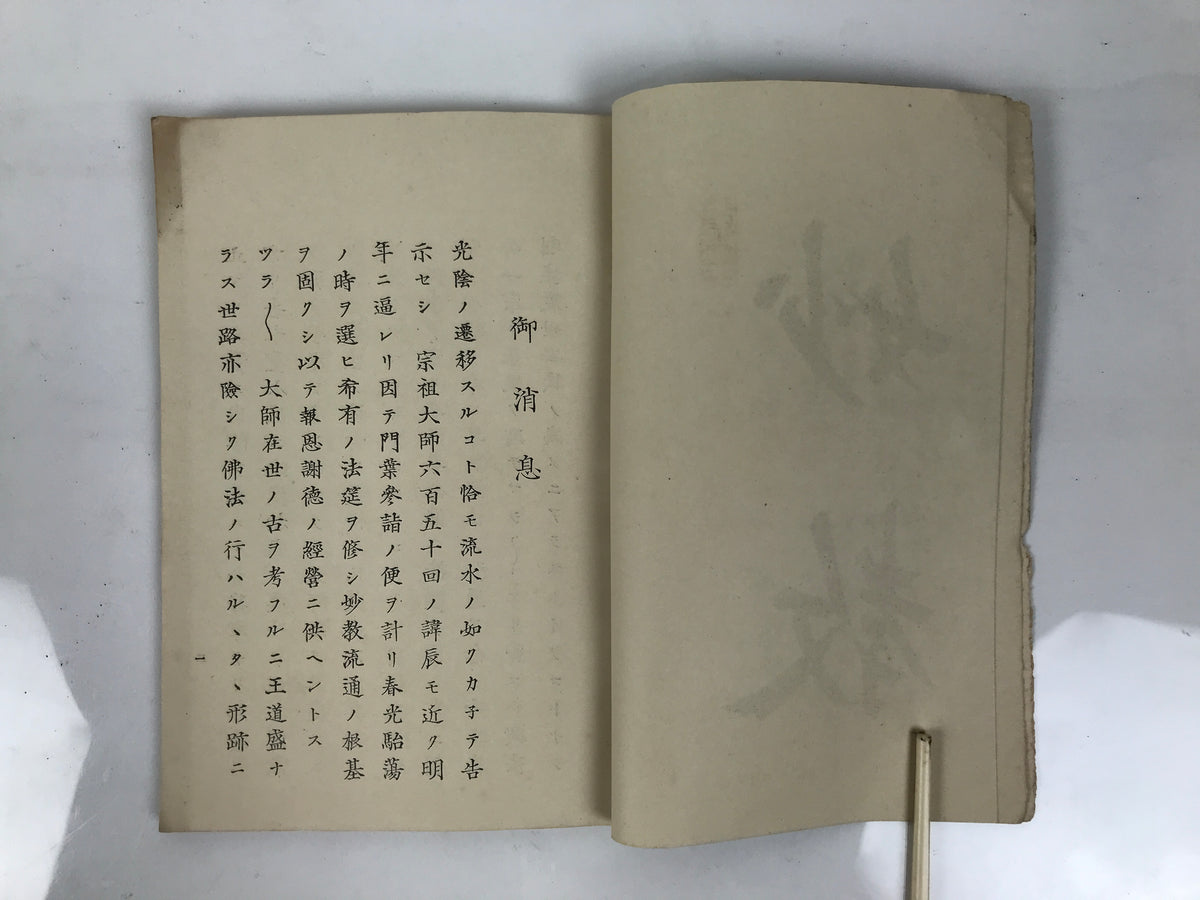 御消息
光陰ノ遷移スルコト恰モ流水ノ如クカ子テ告
示セシ　宗祖大師六百五十回ノ諱辰モ近ク明
年ニ逼レリ因テ門葉參詣ノ便ヲ計リ春光駘蕩
ノ時ヲ選ヒ希有ノ法筵ヲ修シ妙教流通ノ根基
ヲ固クシ以テ報恩謝德ノ經營ニ供ヘントス
ツラ〱　大師在世ノ古ヲ考フルニ王道盛ナ
ラス世路亦險シク佛法ノ行ハルヽタヽ形跡ニ
一